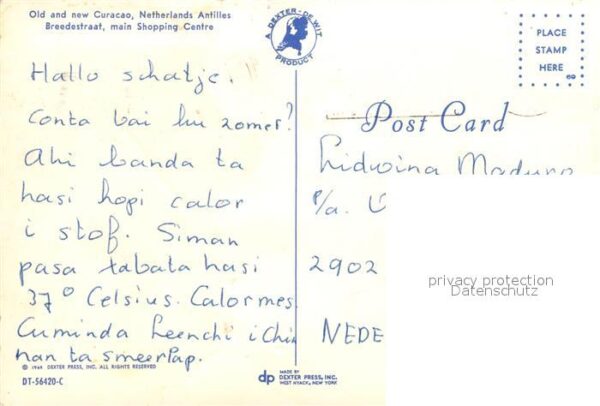 Old and new Curacao, Netherlands Antilles
Breedestraat, main Shopping Centre
A DEXTER-DE WIT
PRODUCT
PLACE
STAMP
HERE
69
Hallo schatje.
Conta bai ku zomer?
Ahi banda ta
hasi hopi calor
i stof. Siman
pasa tabata hasi
37° Celsius. Calor mes.
Cuminda Leenchi i Chin
nan ta smeerpap.
Post Card
Lidwina Maduro
P/a.
2902
NEDE
privacy protection
Datenschutz
© 1969 DEXTER PRESS, INC. ALL RIGHTS RESERVED
DT-56420-C
dp
MADE BY
DEXTER PRESS, INC.
WEST NYACK, NEW YORK